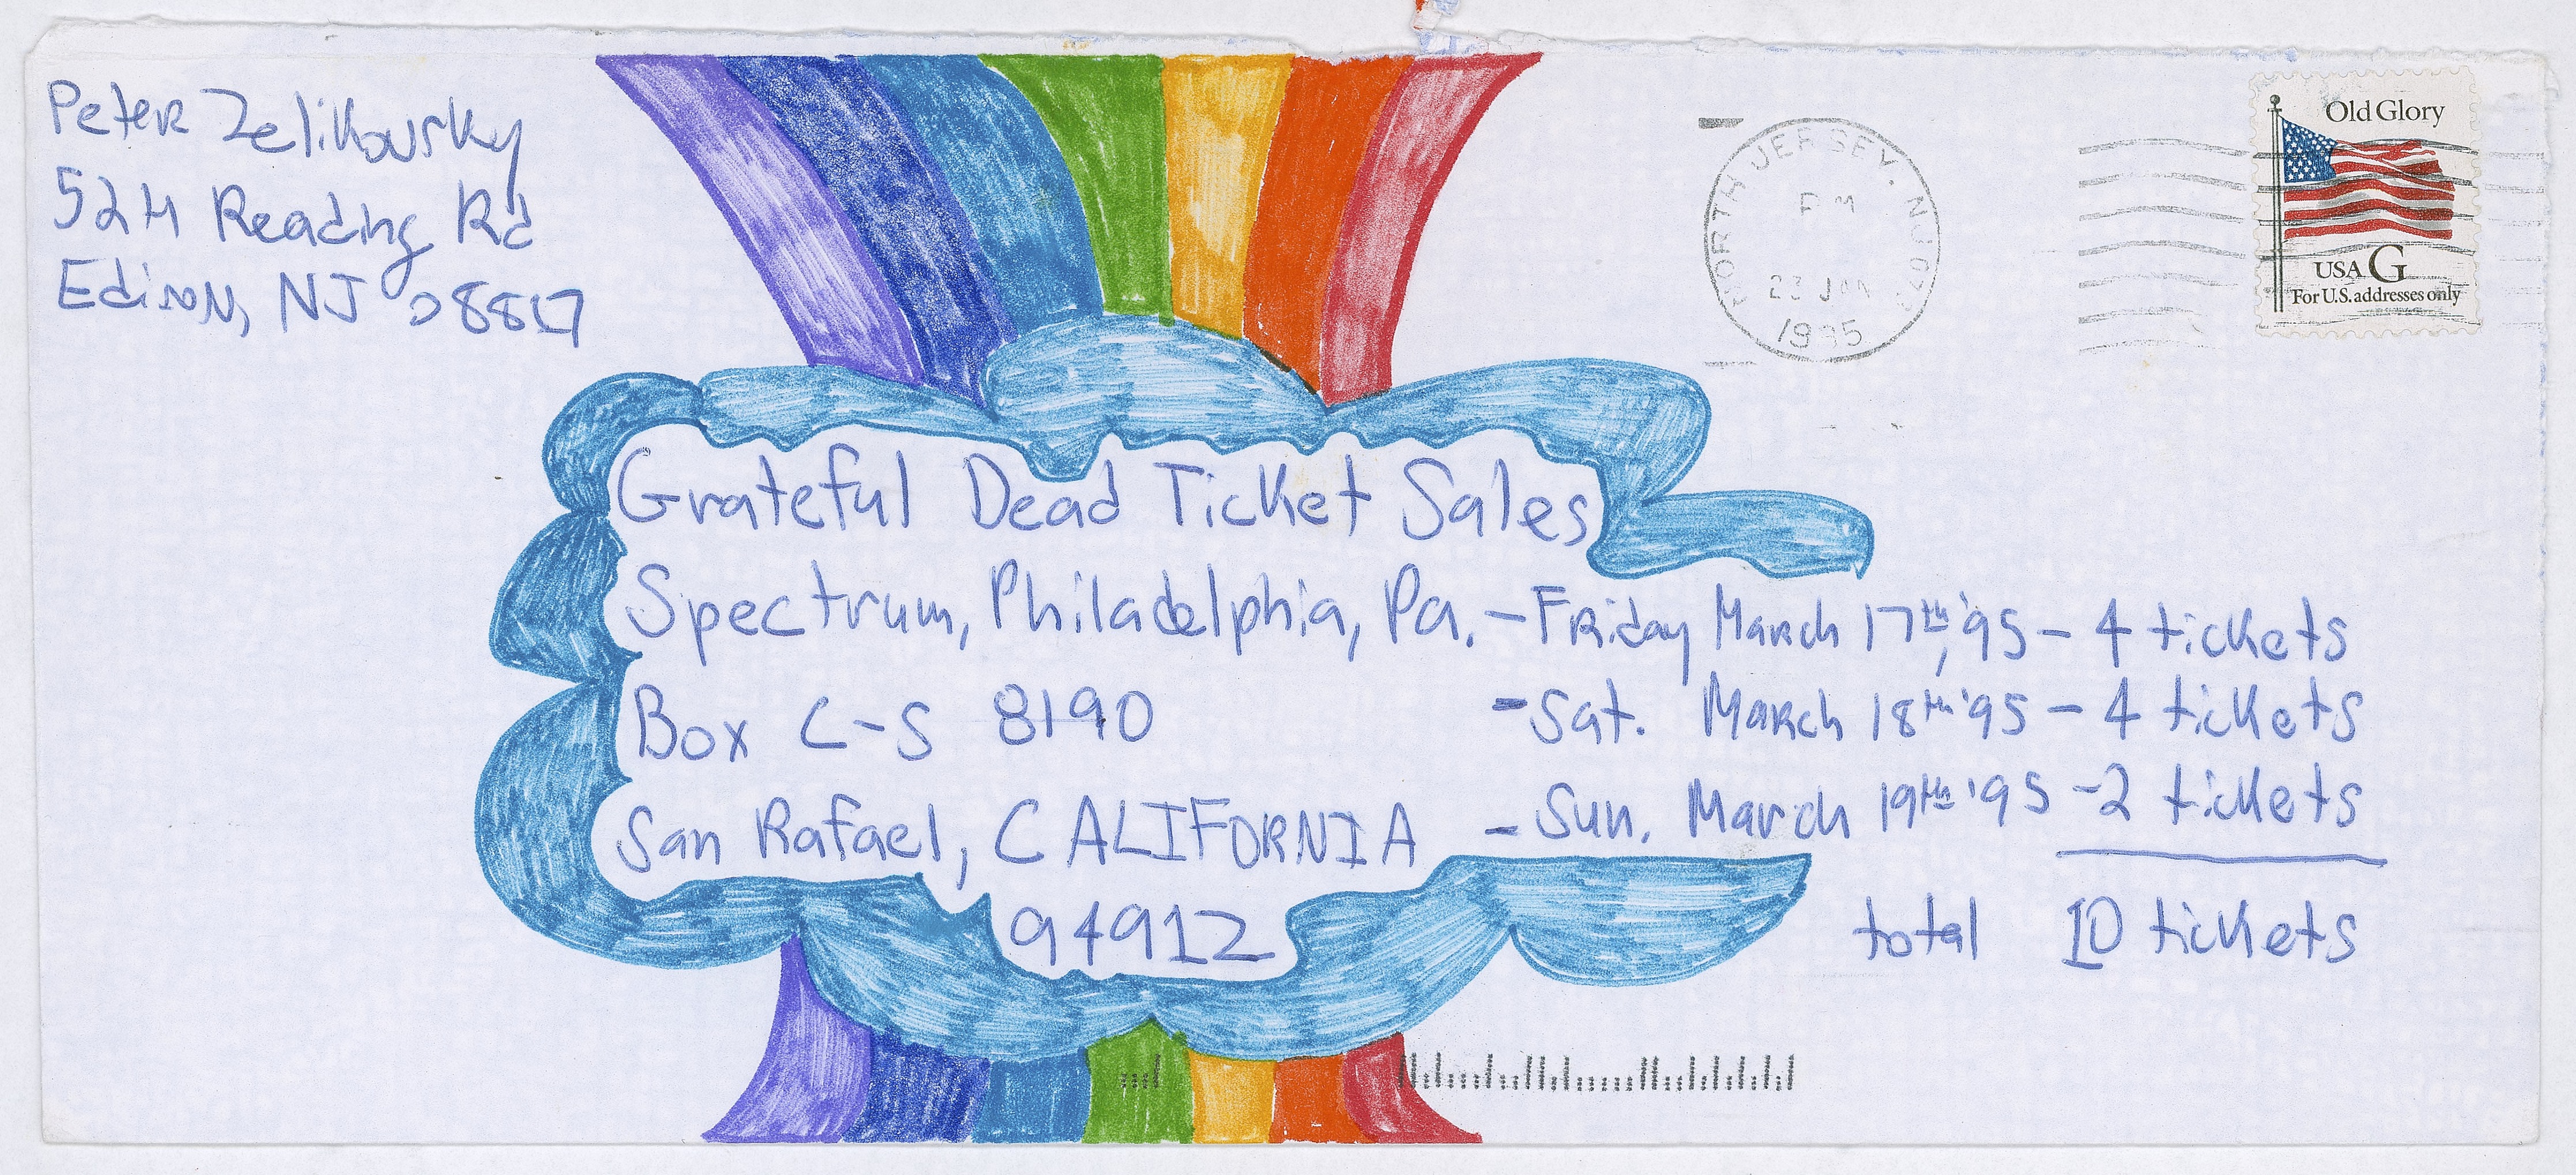 Peter Zelikovsky
52H Reading Rd
Edison, NJ 08817
NORTH JERSEY, NJ 072
PM
23 JAN
1995
Old Glory
USA G
For U.S. addresses only
Grateful Dead Ticket Sales
Spectrum, Philadelphia, Pa. - Friday March 17th, '95 - 4 tickets
Box C-S 8190 - Sat. March 18th '95 - 4 tickets
San Rafael, CALIFORNIA - Sun. March 19th '95 - 2 tickets
94912 total 10 tickets